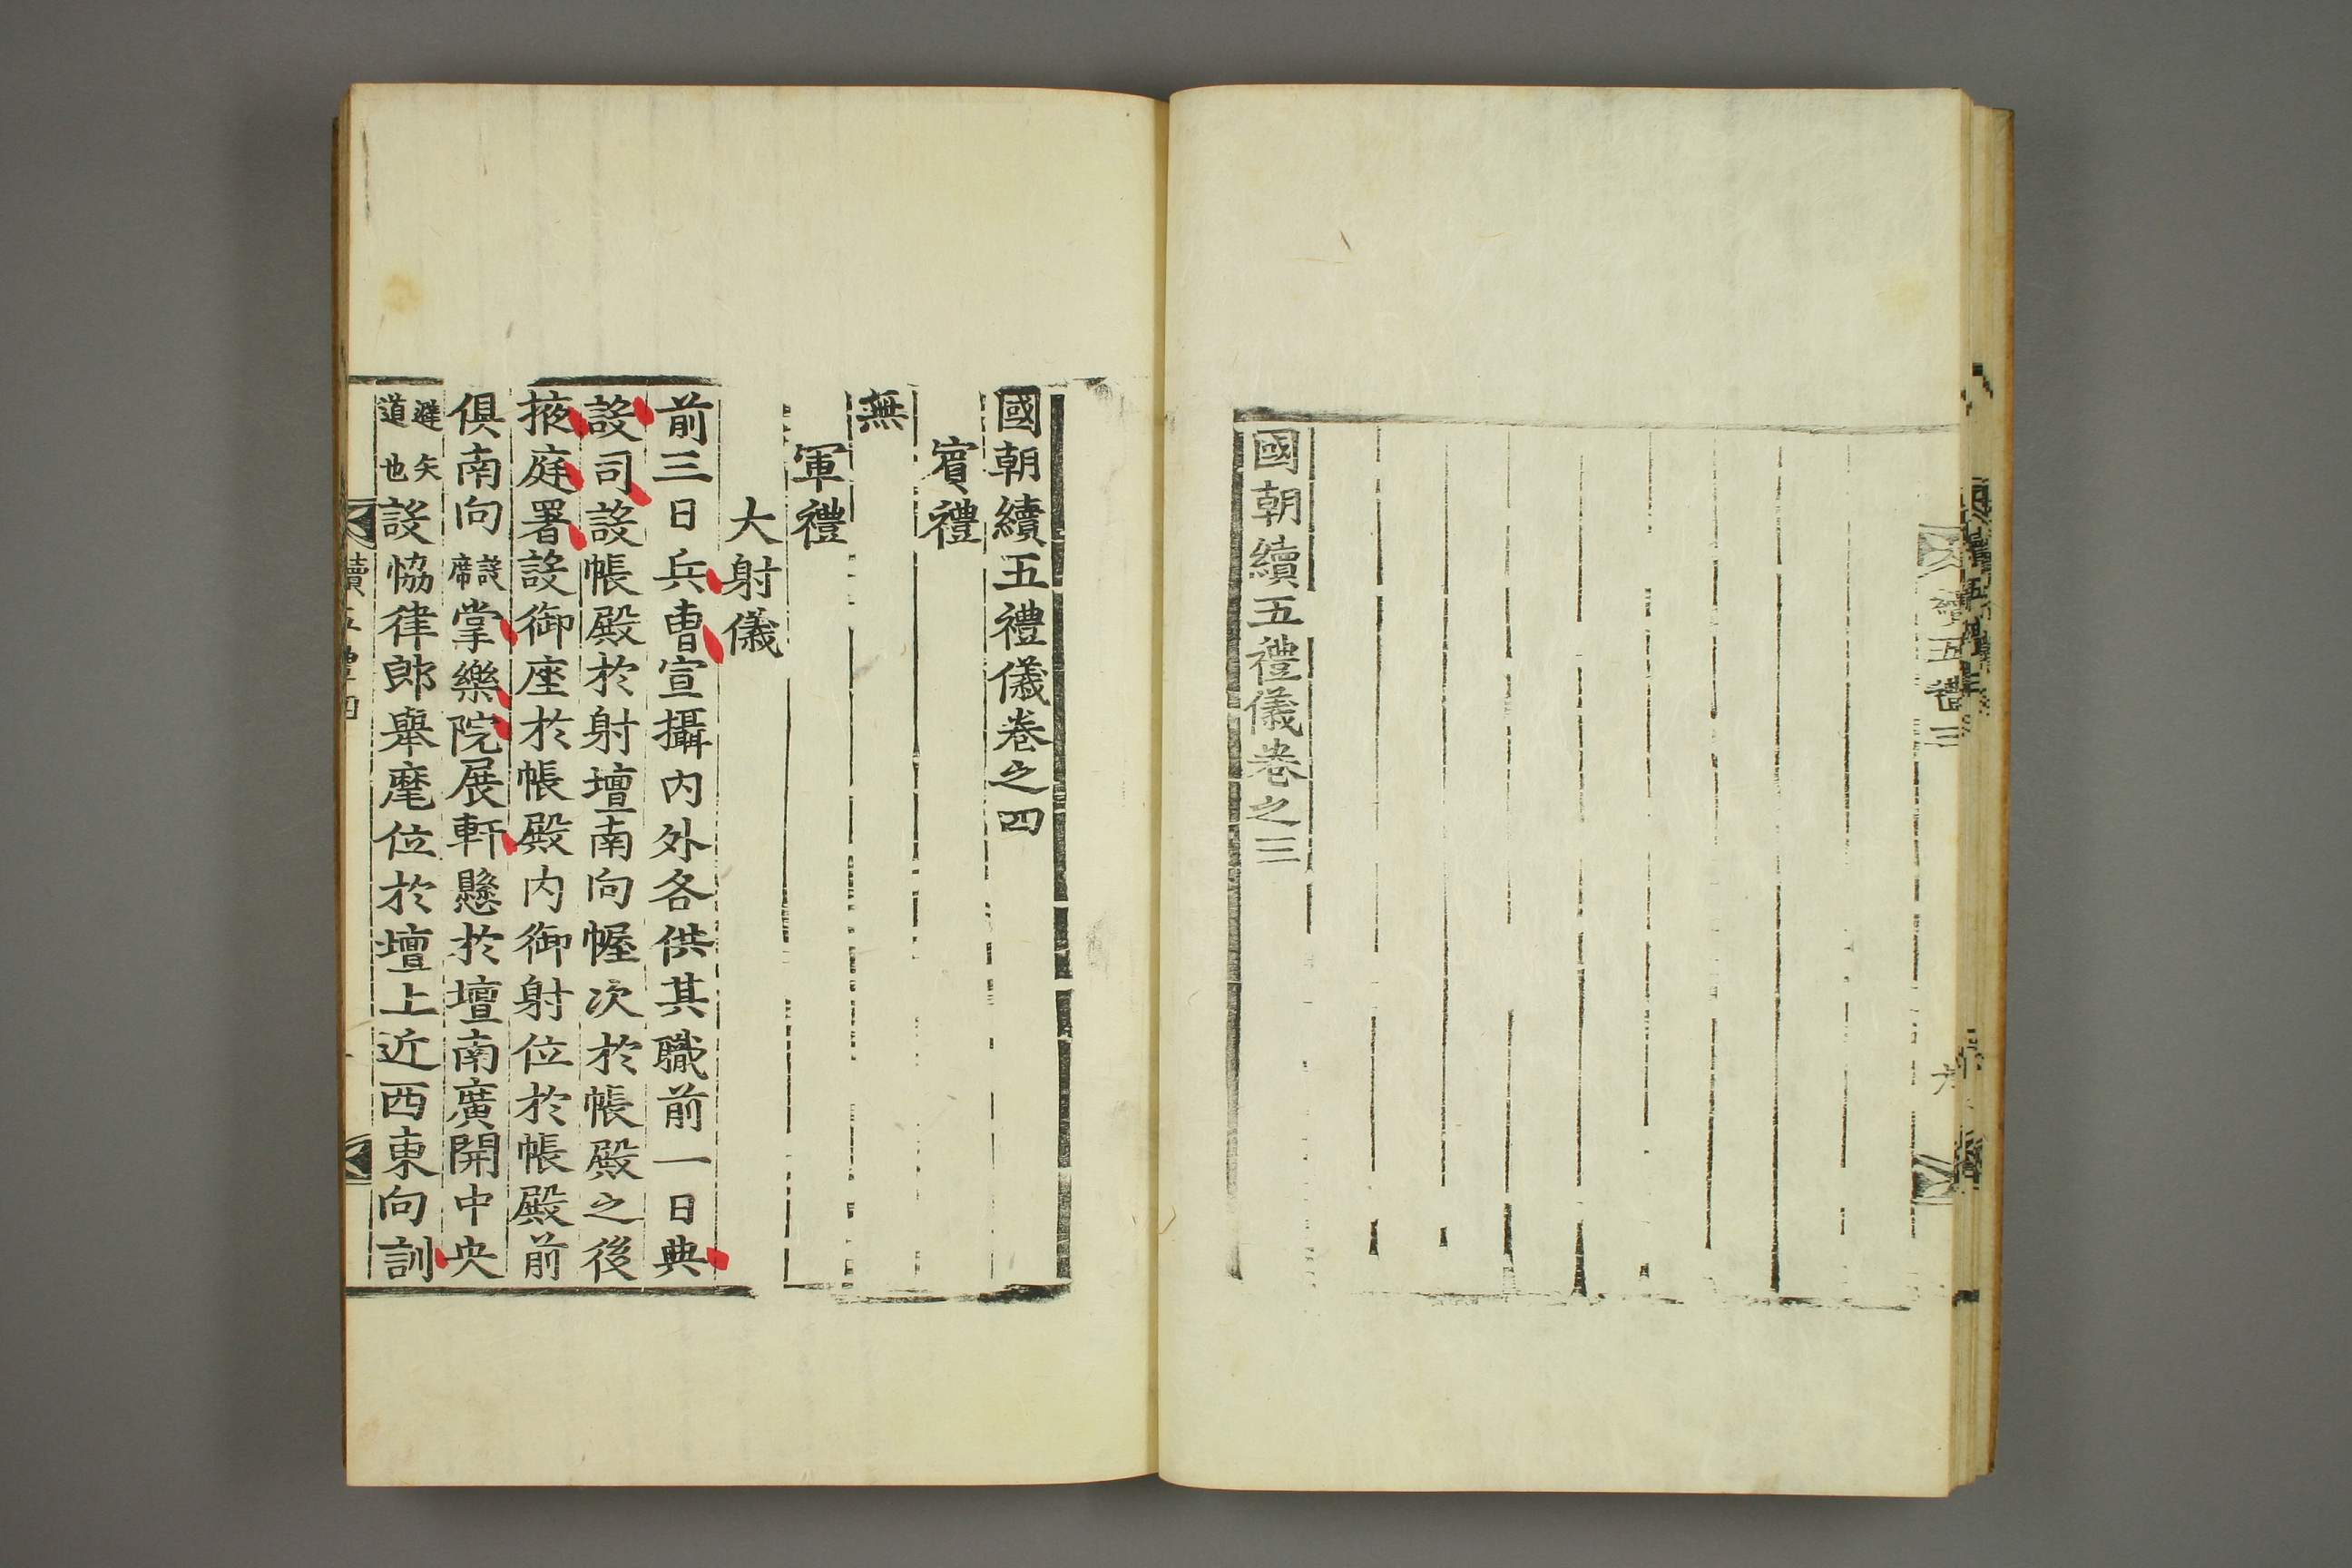 續五禮三
國朝續五禮儀卷之三
國朝續五禮儀卷之四
賓禮
無
軍禮
大射儀
前三日兵曹宣攝內外各供其職前一日典
設司設帳殿於射壇南向幄次於帳殿之後
掖庭署設御座於帳殿內御射位於帳殿前
俱南向設席掌樂院展軒懸於壇南廣開中央
避矢道也設協律郎舉麾位於壇上近西東向訓